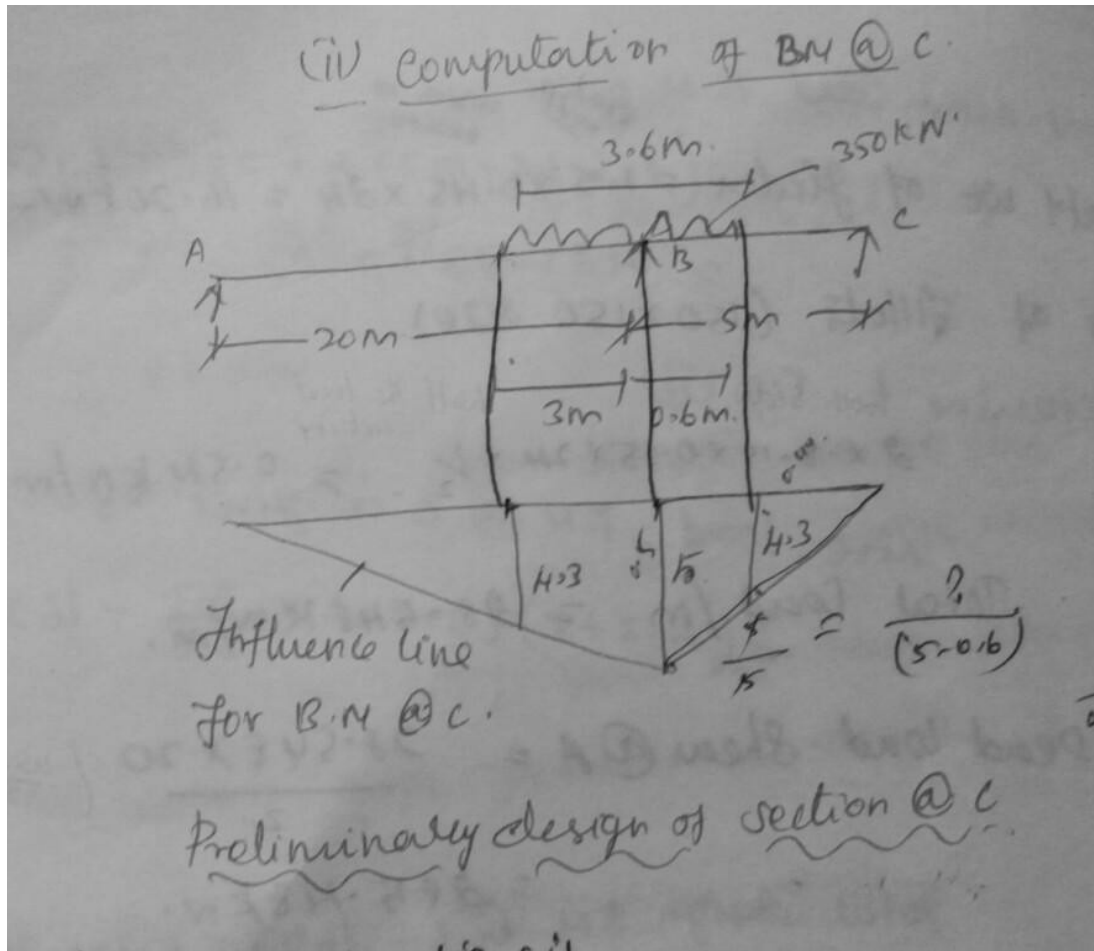 (ii) Computation of BM @ C.
3.6m.
350KN.
A
B
C
20m
5m
3m
0.6m.
4.3
5
4.3
5/5 = ?/(5-0.6)
Influence line
for B.M @ C.
Preliminary design of section @ C